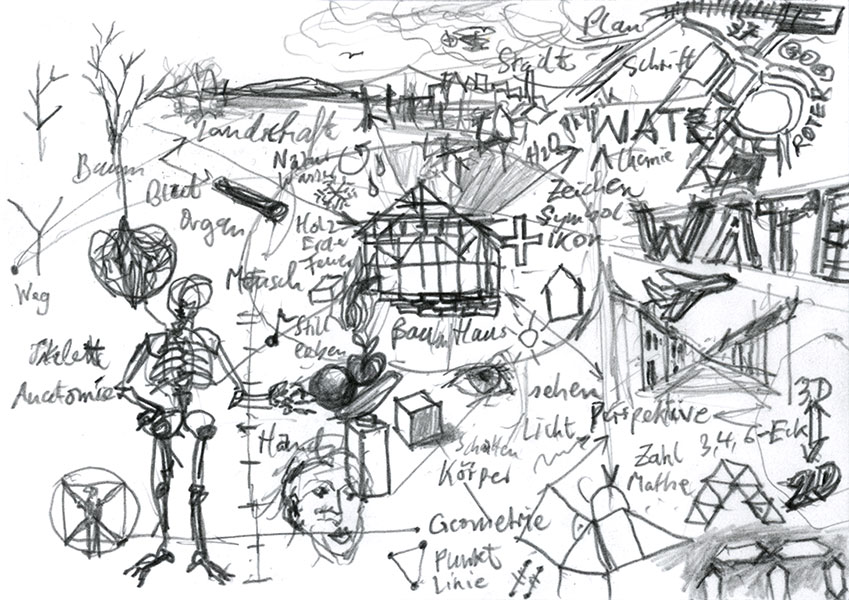 Plan
Städte
Schrift
Landschaft
Natur
Wasser
H2O
WATER
Chemie
ROTER
Baum
Blatt
Organ
Holz
Erde
Feuer
Zeichen
Symbol
ikon
WATE
Mensch
Weg
Still
leben
Baum Haus
Skelett
Anatomie
sehen
Licht
Perspektive
3D
Hand
Schatten
Körper
Zahl 3,4,6-Eck
Mathe
2D
Geometrie
Punkt
Linie